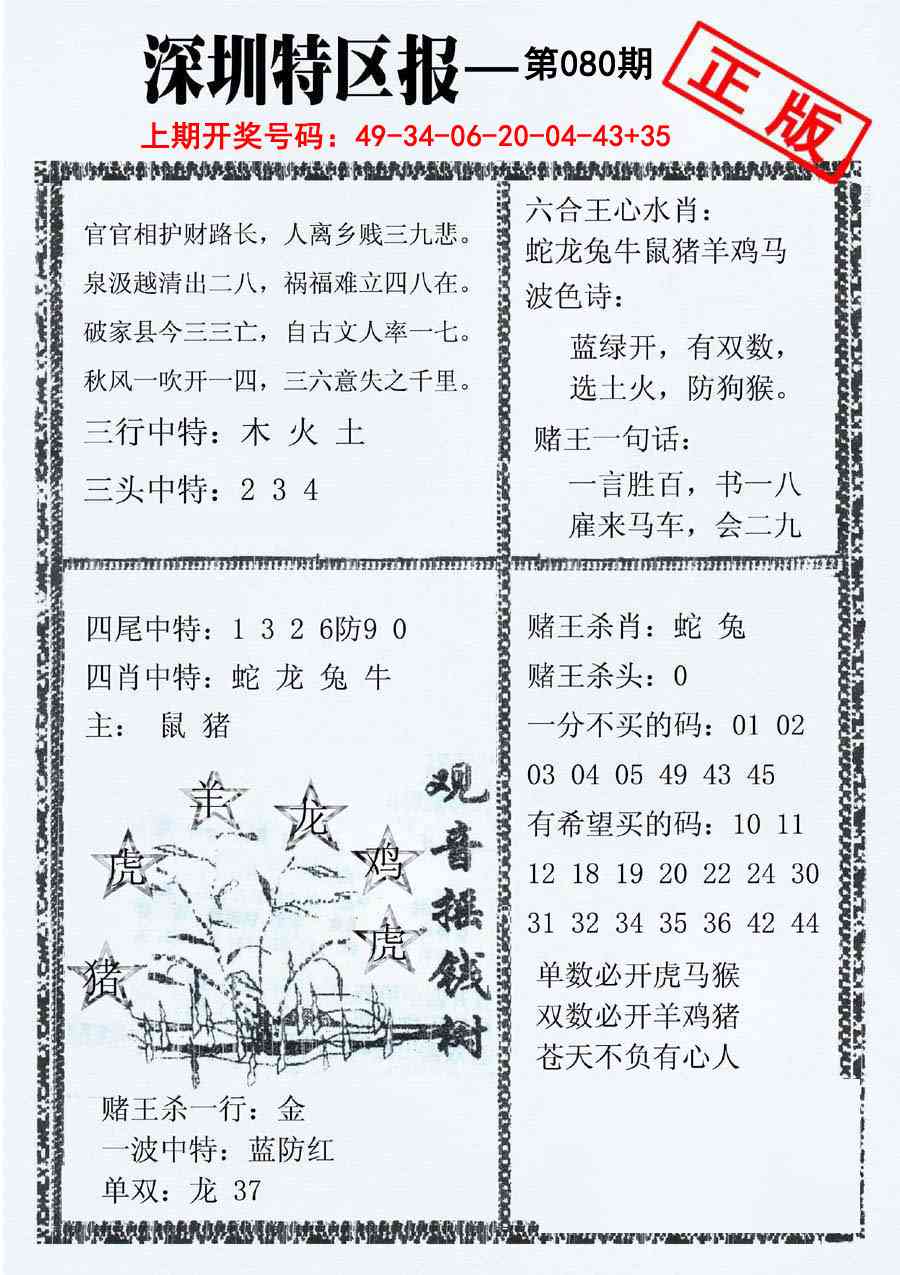 深圳特区报—第080期
正版
上期开奖号码：49-34-06-20-04-43+35
官官相护财路长，人离乡贱三九悲。
泉汲越清出二八，祸福难立四八在。
破家县今三三亡，自古文人率一七。
秋风一吹开一四，三六意失之千里。
三行中特：木 火 土
三头中特：2 3 4
六合王心水肖：
蛇龙兔牛鼠猪羊鸡马
波色诗：
蓝绿开，有双数，
选土火，防狗猴。
赌王一句话：
一言胜百，书一八
雇来马车，会二九
四尾中特：1 3 2 6防9 0
四肖中特：蛇 龙 兔 牛
主： 鼠 猪
羊
龙
虎
鸡
虎
猪
观音摇钱树
赌王杀一行：金
一波中特：蓝防红
单双：龙 37
赌王杀肖：蛇 兔
赌王杀头：0
一分不买的码：01 02
03 04 05 49 43 45
有希望买的码：10 11
12 18 19 20 22 24 30
31 32 34 35 36 42 44
单数必开虎马猴
双数必开羊鸡猪
苍天不负有心人